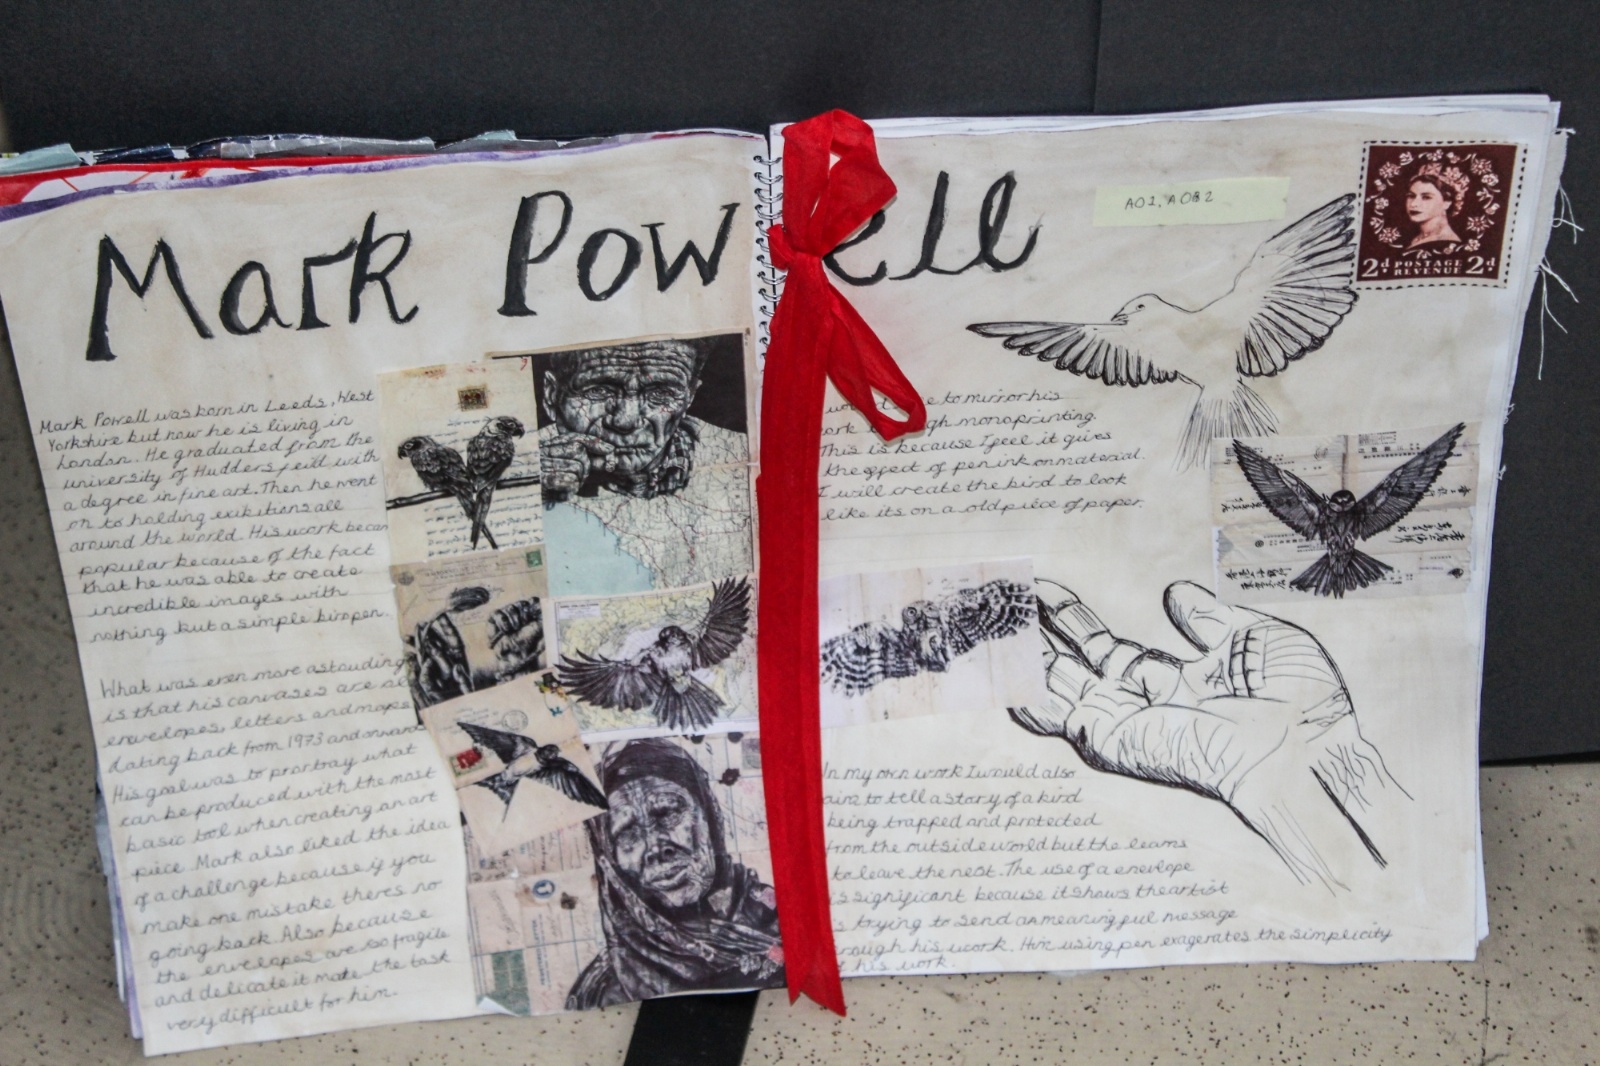 Mark Powell
AO1, AOB2
2d POSTAGE REVENUE 2d
Mark Powell was born in Leeds, West
Yorkshire but now he is living in
London. He graduated from the
university of Huddersfeild with
a degree in fine art. Then he went
on to holding exibitions all
around the world. His work becam
popular because of the fact
that he was able to create
incredible images with
nothing but a simple biropen.
What was even more astouding
is that his canvases are
envelopes, letters and maps
dating back from 1973 and onwards
His goal was to prortray what
can be produced with the most
basic tool when creating an art
piece. Mark also liked the idea
of a challenge because if you
make one mistake theres no
going back. Also because
the envelopes are too fragile
and delicate it made the task
very difficult for him.
to mirror his
monoprinting.
This is because I feel it gives
the effect of pen ink on material.
I will create the bird to look
like its on a old piece of paper.
In my own work I would also
aim to tell a story of a bird
being trapped and protected
from the outside world but the learns
to leave the nest. The use of a envlope
is significant because it shows the artist
is trying to send a meaningful message
through his work. Him using pen exagerates the simplicity
of his work.